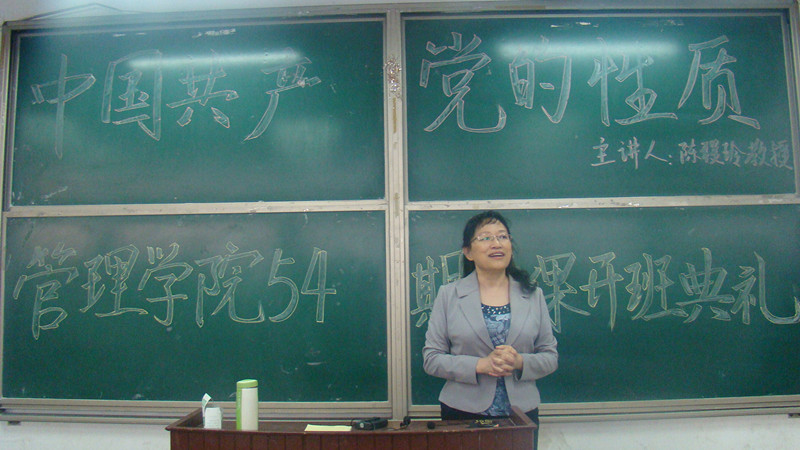 中国共产党的性质
主讲人:陈骎玲教授
管理学院54期 课开班典礼